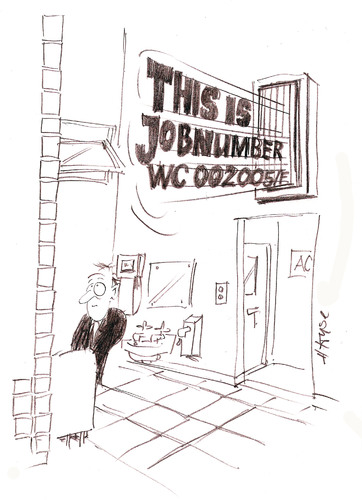 THIS IS
JOBNUMBER
WC 002005/E
AC